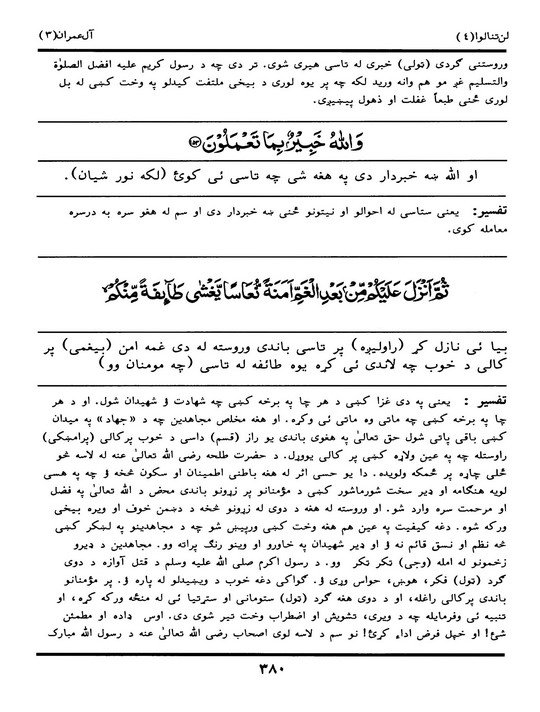 لن تنالوا(٤) آل عمران(٣)
وروستنی گردی (ټولی) خبری له تاسی هیری شوی. تر دی چه د رسول کریم علیه افضل الصلوٰة
والتسلیم غږ مو هم وانه ورید لکه چه پر یوه لوری د بیخی ملتفت کیدلو په وخت کښی له بل
لوری ځنی طبعاً غفلت او ذهول پیښیږی.
وَاللّٰهُ خَبِیْرٌۢ بِمَا تَعْمَلُوْنَ ﴿۱۵۳﴾
او الله ښه خبردار دی په هغه شی چه تاسی ئی کوئ (لکه نور شیان).
تفسیر: یعنی ستاسی له احوالو او نیتونو ځنی ښه خبردار دی او سم له هغو سره به درسره
معامله کوی.
ثُمَّ اَنْزَلَ عَلَیْكُمْ مِّنْۢ بَعْدِ الْغَمِّ اَمَنَةً نُّعَاسًا یَّغْشٰی طَآىِٕفَةً مِّنْكُمْ ۙ
بیا ئی نازل کړ (راولیږه) پر تاسی باندی وروسته له دی غمه امن (بیغمی) پر
کالی د خوب چه لاندی ئی کړه یوه طائفه له تاسی (چه مومنان وو)
تفسیر : یعنی په دی غزا کښی د هر چا په برخه کښی چه شهادت ؤ شهیدان شول. او د هر
چا په برخه کښی چه ماتی وه ماتی ئی وکړه. او هغه مخلص مجاهدین چه د «جهاد» په میدان
کښی باقی پاتی شول حق تعالیٰ په هغوی باندی یو راز (قسم) داسی د خوب پرکالی (پرامښکی)
راوستله چه په عین ولاړه کښی پر کالی یووړل. د حضرت طلحه رضی الله تعالیٰ عنه له لاسه څو
ځلی چاړه پر ځمکه ولویده. دا یو حسی اثر له هغه باطنی اطمینان او سکون څخه ؤ چه په هسی
لویه هنگامه او ډیر سخت شورماشور کښی د مؤمنانو پر زړونو باندی محض د الله تعالیٰ په فضل
او مرحمت سره وارد شو. او وروسته له هغه د دوی له زړونو څخه د دښمن خوف او ویره بیخی
ورکه شوه. دغه کیفیت په عین هم هغه وخت کښی ورپیښ شو چه د مجاهدینو په لښکر کښی
څه نظم او نسق قائم نه ؤ او ډیر شهیدان په خاورو او وینو رنگ پراته وو. مجاهدین د ډیرو
زخمونو له امله (وجی) ټکر ټکر وو. د رسول اکرم صلی الله علیه وسلم د قتل آوازه د دوی
گرد (ټول) فکر، هوښ، حواس وړی ؤ. گواکی دغه خوب د ویښیدلو له پاره ؤ. پر مؤمنانو
باندی پرکالی راغله، او د دوی هغه گرد (ټول) ستومانی او ستړتیا ئی له منځه ورکه کړه، او
تنبیه ئی وفرمایله چه د ویری، تشویش او اضطراب وخت تیر شوی دی. اوس ډاډه او مطمئن
شئ! او خپل فرض اداء کړئ! نو سم د لاسه لوی اصحاب رضی الله تعالیٰ عنه د رسول الله مبارک
٣٨٠